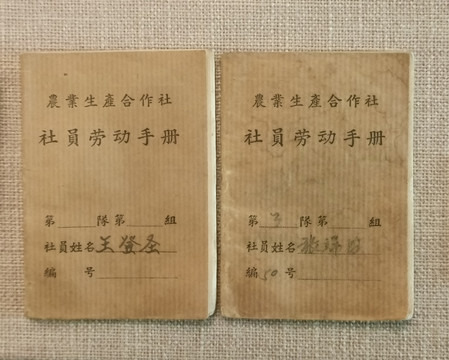 農業生產合作社
社員劳动手册
第 隊第 組
社員姓名 王登圣
編 号
農業生產合作社
社員劳动手册
第 3 隊第 組
社員姓名
編 50 号